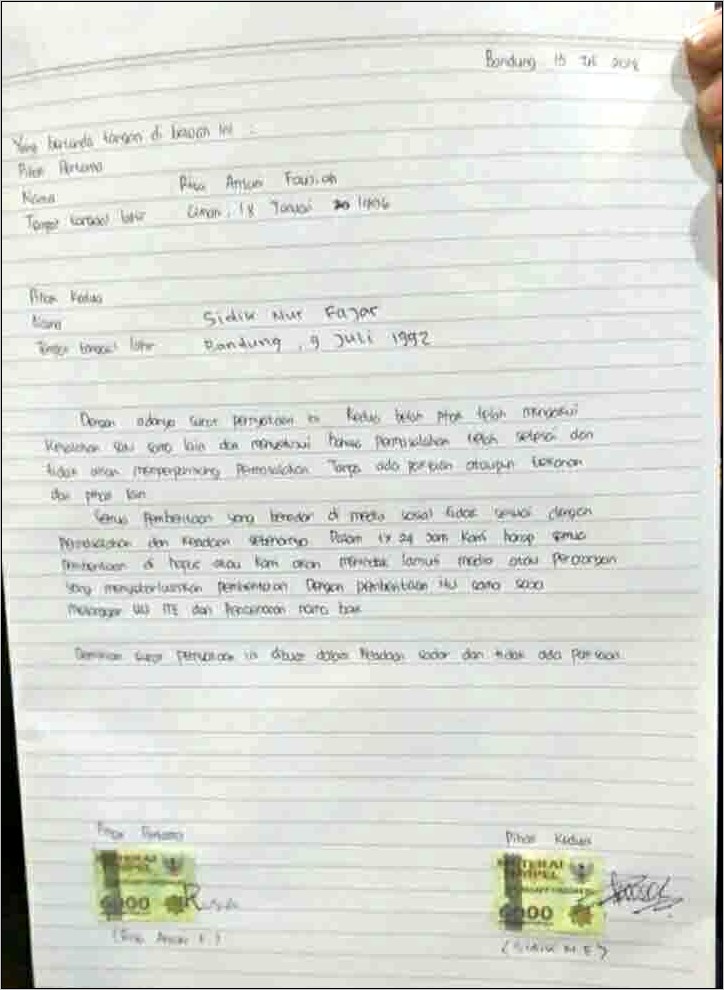 Bandung 15 Juli 2018
Yang bertanda tangan di bawah ini :
Pihak Pertama
Nama
Ansuri Fauziah
Tempat tanggal lahir , 18 1996
Pihak Kedua
Nama Sidik Nur Fajar
Tempat tanggal lahir Bandung , 9 Juli 1992
Dengan adanya surat pernyataan ini Kedua belah pihak telah mengakui
Kesalahan satu sama lain dan menyetujui bahwa permasalahan telah selesai dan
tidak akan memperpanjang Permasalahan Tanpa ada paksaan ataupun tekanan
dari pihak lain
Semua Pemberitaan yang beredar di media sosial tidak sesuai dengan
Permasalahan dan Keadaan sebenarnya Dalam 1x 24 Jam Kami harap semua
Pemberitaan di hapus atau Kami akan menindak lanjuti media atau perorangan
yang pemberitaan Dengan pemberitaan itu sama saja
melanggar UU ITE dan Pencemaran nama baik
Demikian surat pernyataan ini dibuat dalam Keadaan sadar dan tidak ada paksaan
Pihak Pertama
Pihak Kedua
METERAI
TEMPEL
6000
METERAI
TEMPEL
6000
(Sidik N.F)